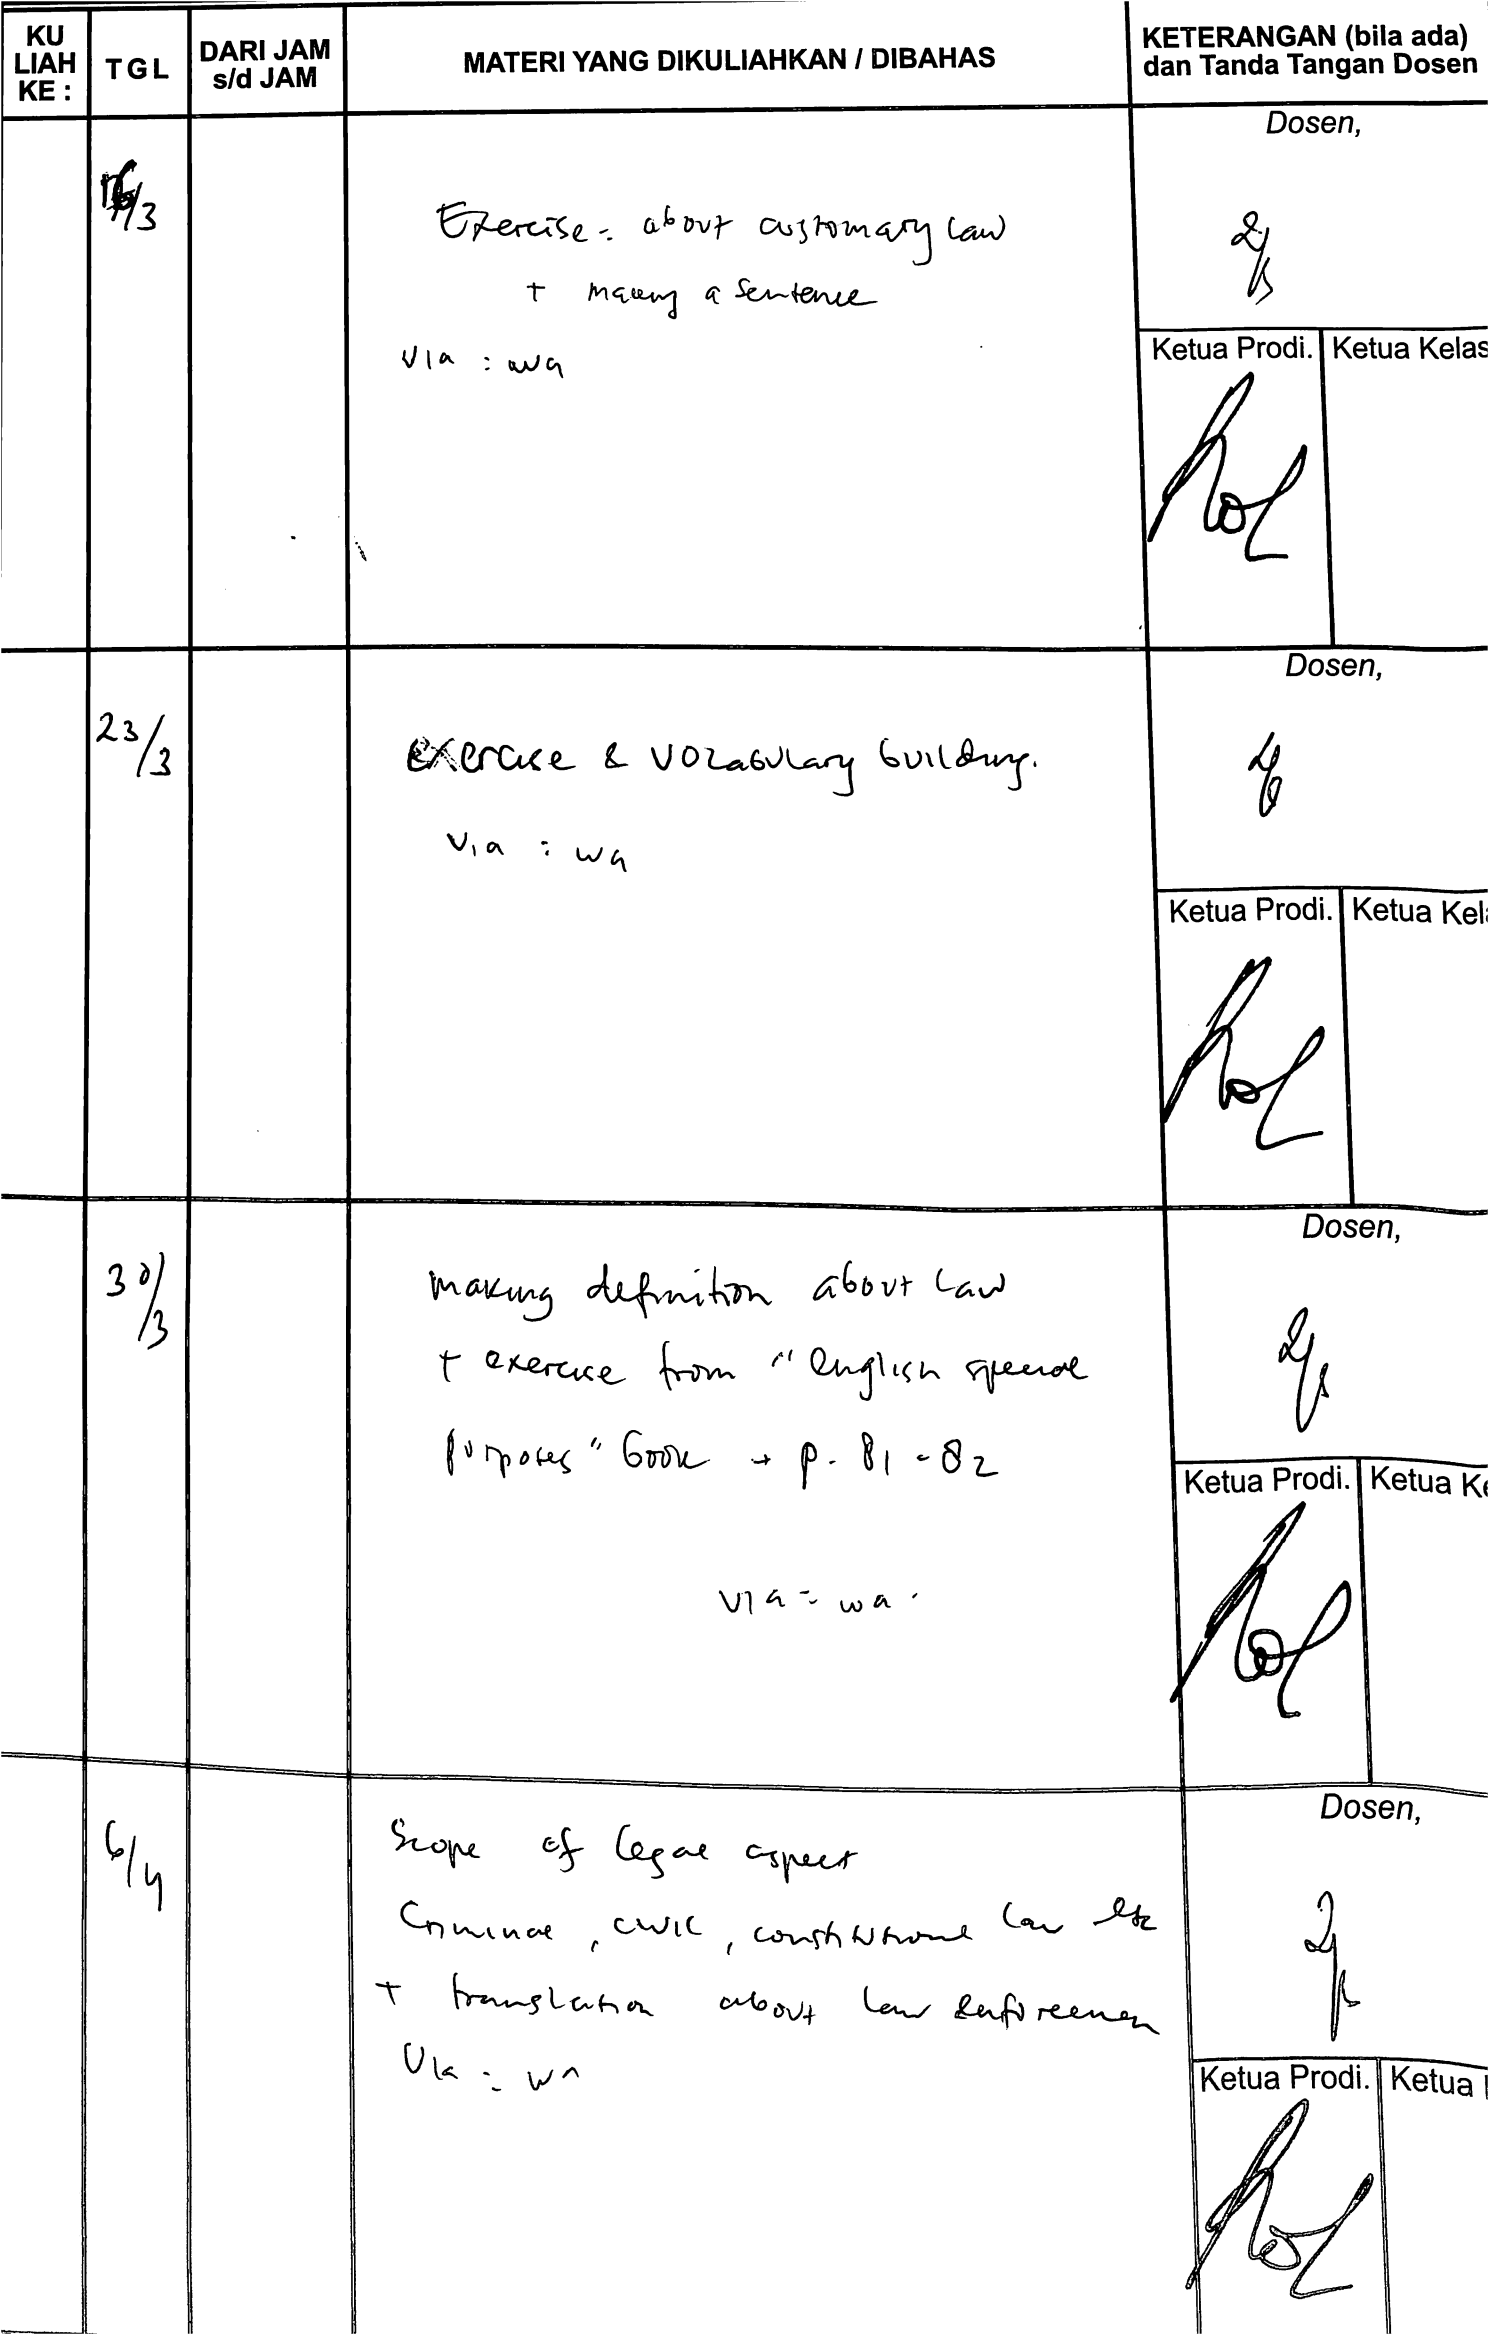 KU LIAH KE :
TGL
DARI JAM s/d JAM
MATERI YANG DIKULIAHKAN / DIBAHAS
KETERANGAN (bila ada) dan Tanda Tangan Dosen
Dosen,
/3
Exercise : about customary law
+ making a sentence
Via : wa
Ketua Prodi. Ketua Kelas
Dosen,
23/3
Exercise & vocabulary building.
Via : wa
Ketua Prodi. Ketua Kela
Dosen,
30/3
making definition about law
+ exercise from "english special
purposes" book → p. 81 - 82
Via : wa
Ketua Prodi. Ketua Ke
Dosen,
6/4
Scope of legal aspect
Criminal, civil, constitutional law etc
+ translation about law enforcemen
Via : wa
Ketua Prodi. Ketua